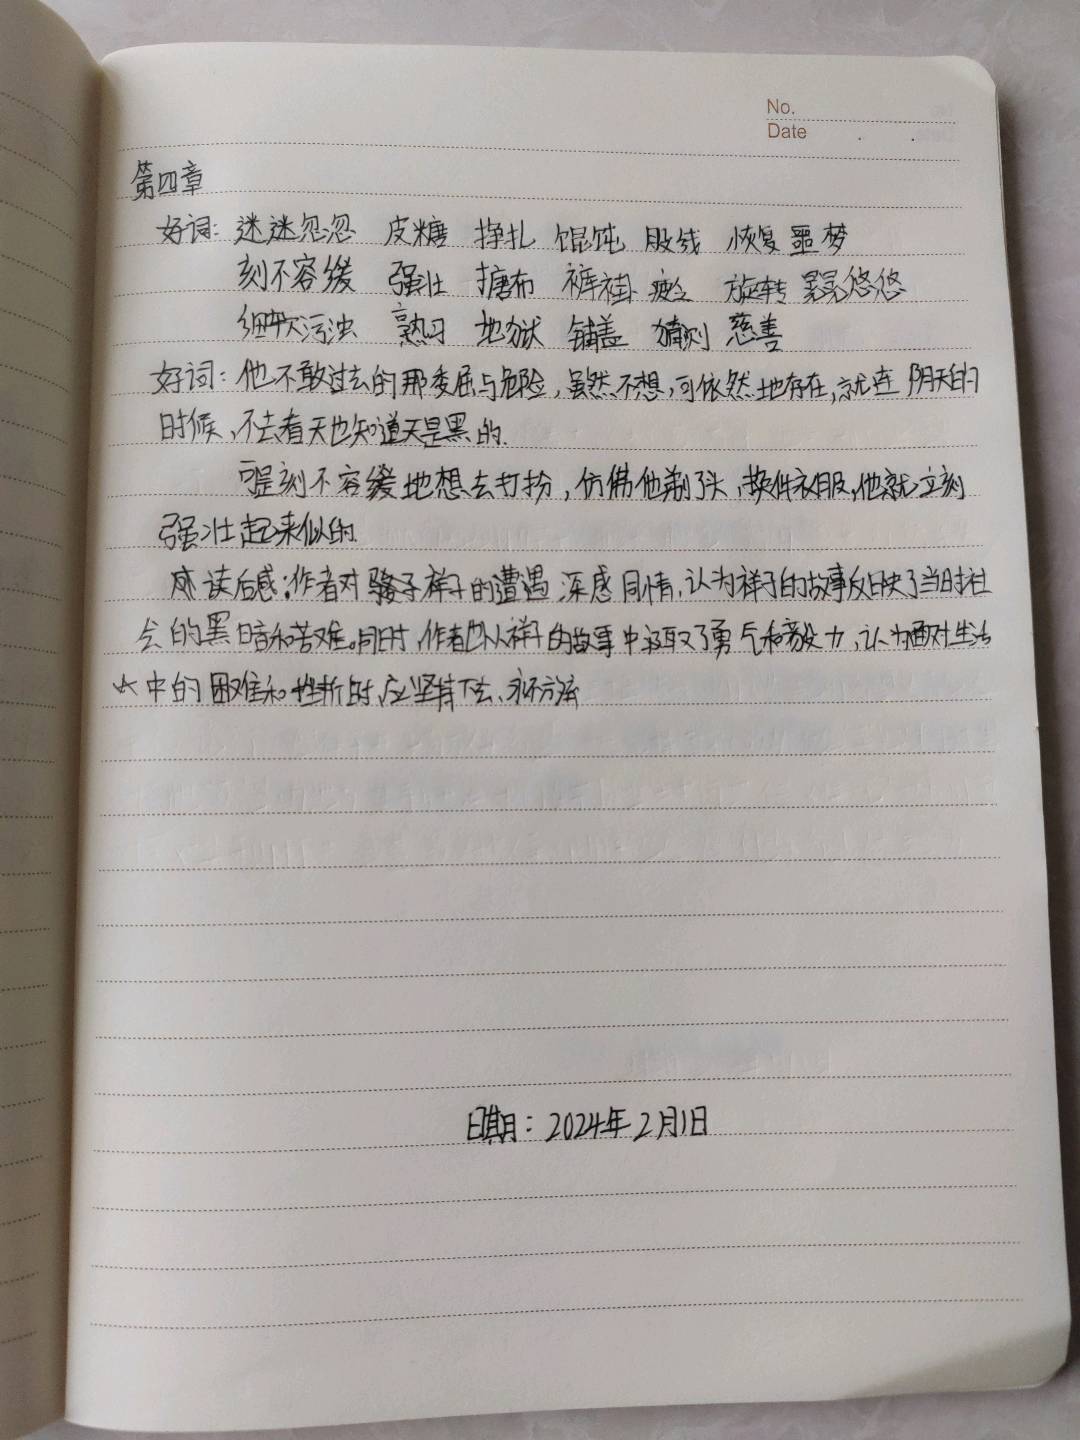 No.
Date
第四章
好词：迷迷忽忽 皮糖 挣扎 馄饨 股线 恢复 噩梦
刻不容缓 强壮 搪布 裤褂 疲 旋转 晃悠悠
污浊 熟习 地狱 铺盖 猜测 慈善
好词：他不敢过去的那委屈与危险，虽然不想，可依然地存在，就连阴天的
时候，不去看天也知道天是黑的.
刻不容缓地想去打扮，仿佛他剃了头，换件衣服，他就立刻
强壮起来似的.
读后感：作者对骆子祥子的遭遇深感同情，认为祥子的故事反映了当时社
会的黑暗和苦难。同时，作者也从祥子的故事中汲取了勇气和毅力，认为面对生活
中的困难和挫折时，应坚持下去、永不方法
日期：2024年2月1日